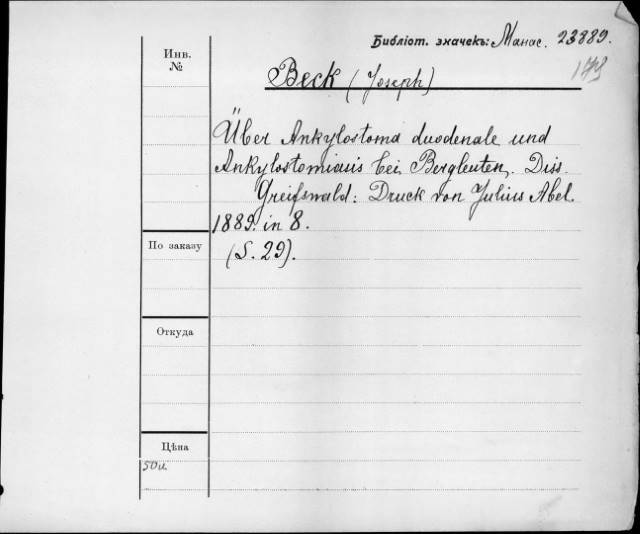 Библіот. значекъ: Манас. 23889.
Инв.
№
Beck (Joseph)
Über Ankylostoma duodenale und
Ankylostomiasis bei Bergleuten. Diss.
Greifswald: Druck von Julius Abel.
1889. in 8.
По заказу
(S. 29).
Откуда
Цѣна
50 к.